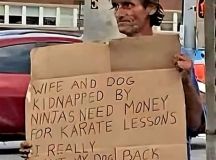 WIFE AND DOG
KIDNAPPED BY
NINJAS NEED MONEY
FOR KARATE LESSONS
I REALLY
MY DOG BACK